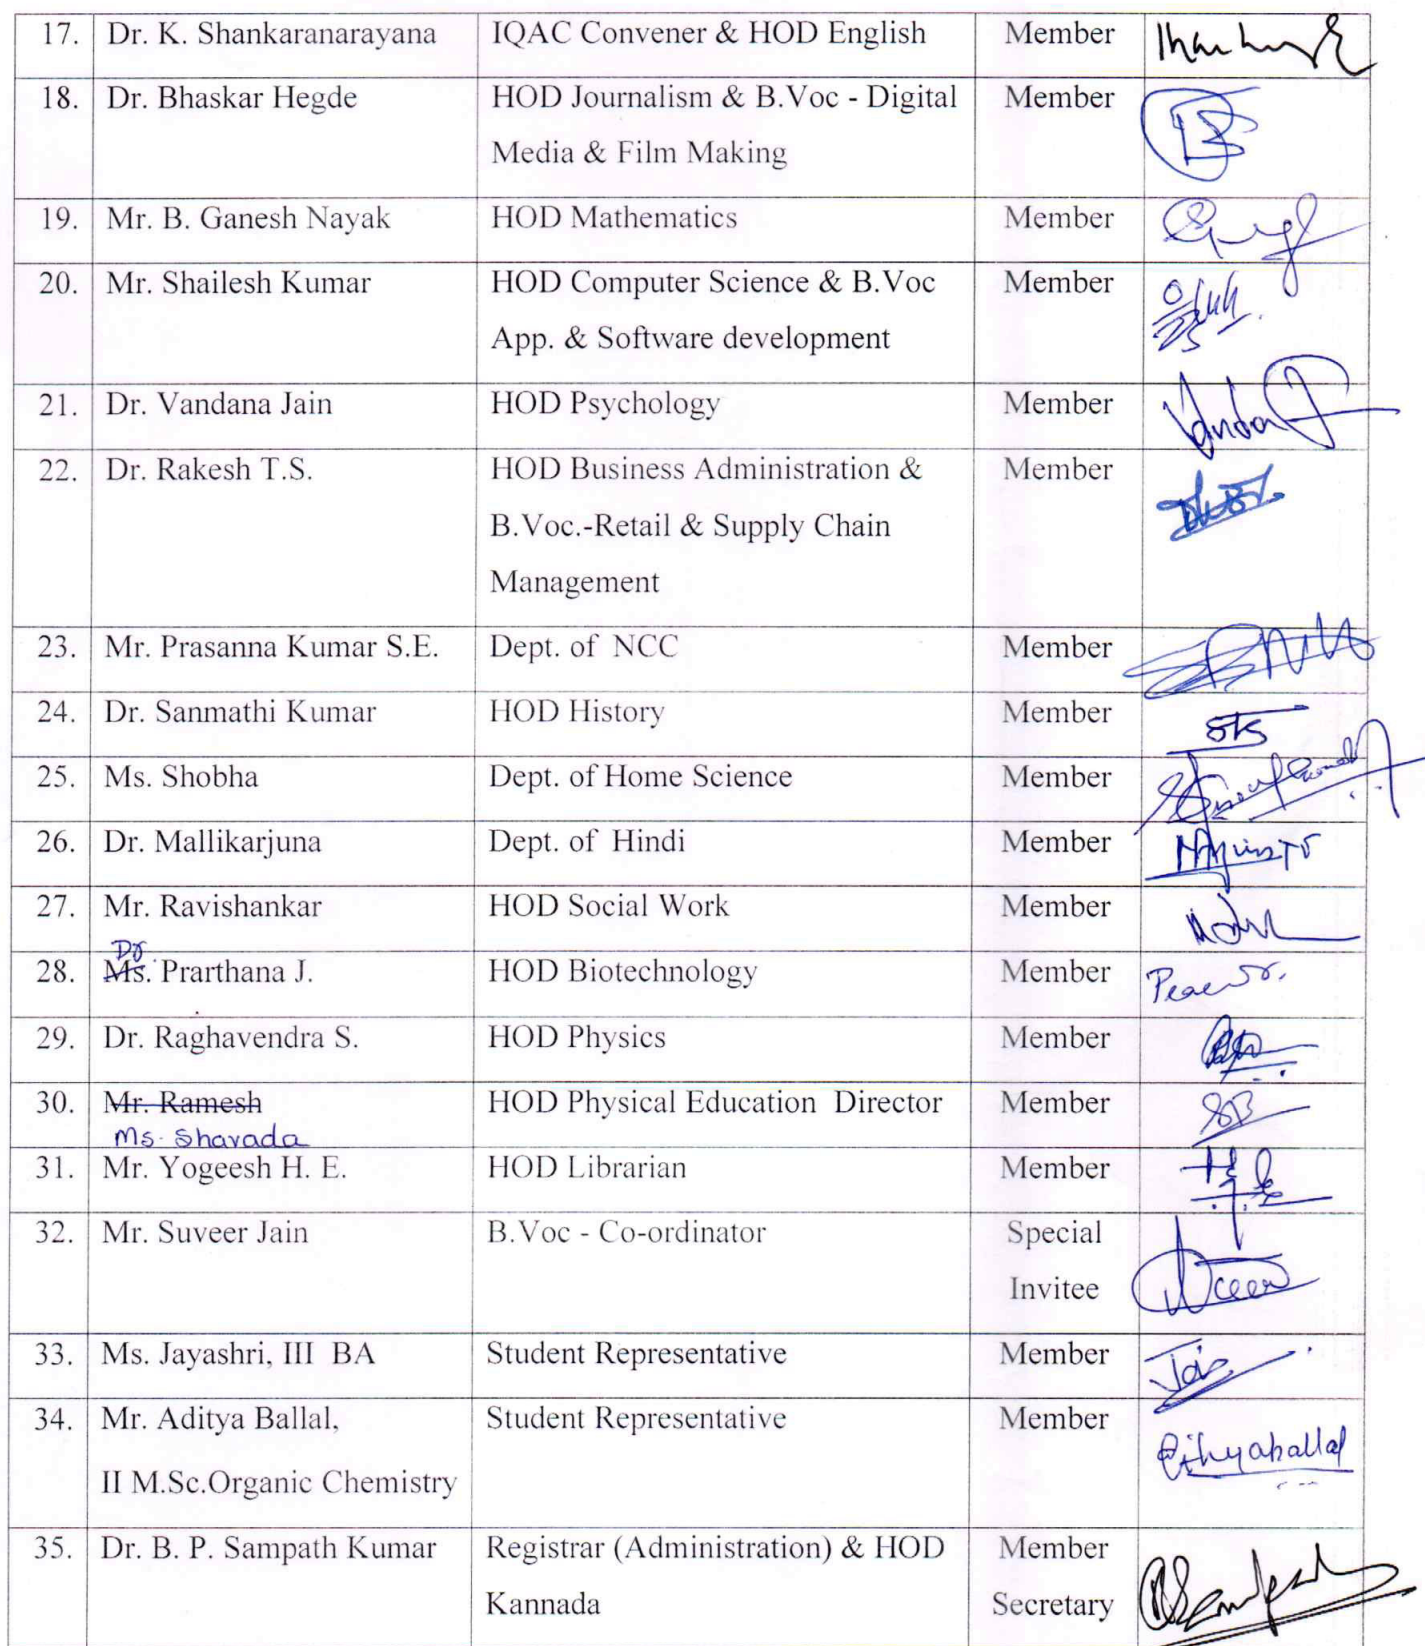 17. Dr. K. Shankaranarayana IQAC Convener & HOD English Member
18. Dr. Bhaskar Hegde HOD Journalism & B.Voc - Digital Member
Media & Film Making
19. Mr. B. Ganesh Nayak HOD Mathematics Member
20. Mr. Shailesh Kumar HOD Computer Science & B.Voc Member
App. & Software development
21. Dr. Vandana Jain HOD Psychology Member
22. Dr. Rakesh T.S. HOD Business Administration & Member
B.Voc.-Retail & Supply Chain
Management
23. Mr. Prasanna Kumar S.E. Dept. of NCC Member
24. Dr. Sanmathi Kumar HOD History Member
25. Ms. Shobha Dept. of Home Science Member
26. Dr. Mallikarjuna Dept. of Hindi Member
27. Mr. Ravishankar HOD Social Work Member
Dr.
28. Ms. Prarthana J. HOD Biotechnology Member
29. Dr. Raghavendra S. HOD Physics Member
30. Mr. Ramesh HOD Physical Education Director Member
Ms. Sharada
31. Mr. Yogeesh H. E. HOD Librarian Member
32. Mr. Suveer Jain B.Voc - Co-ordinator Special
Invitee
33. Ms. Jayashri, III BA Student Representative Member
34. Mr. Aditya Ballal, Student Representative Member
II M.Sc.Organic Chemistry
35. Dr. B. P. Sampath Kumar Registrar (Administration) & HOD Member
Kannada Secretary